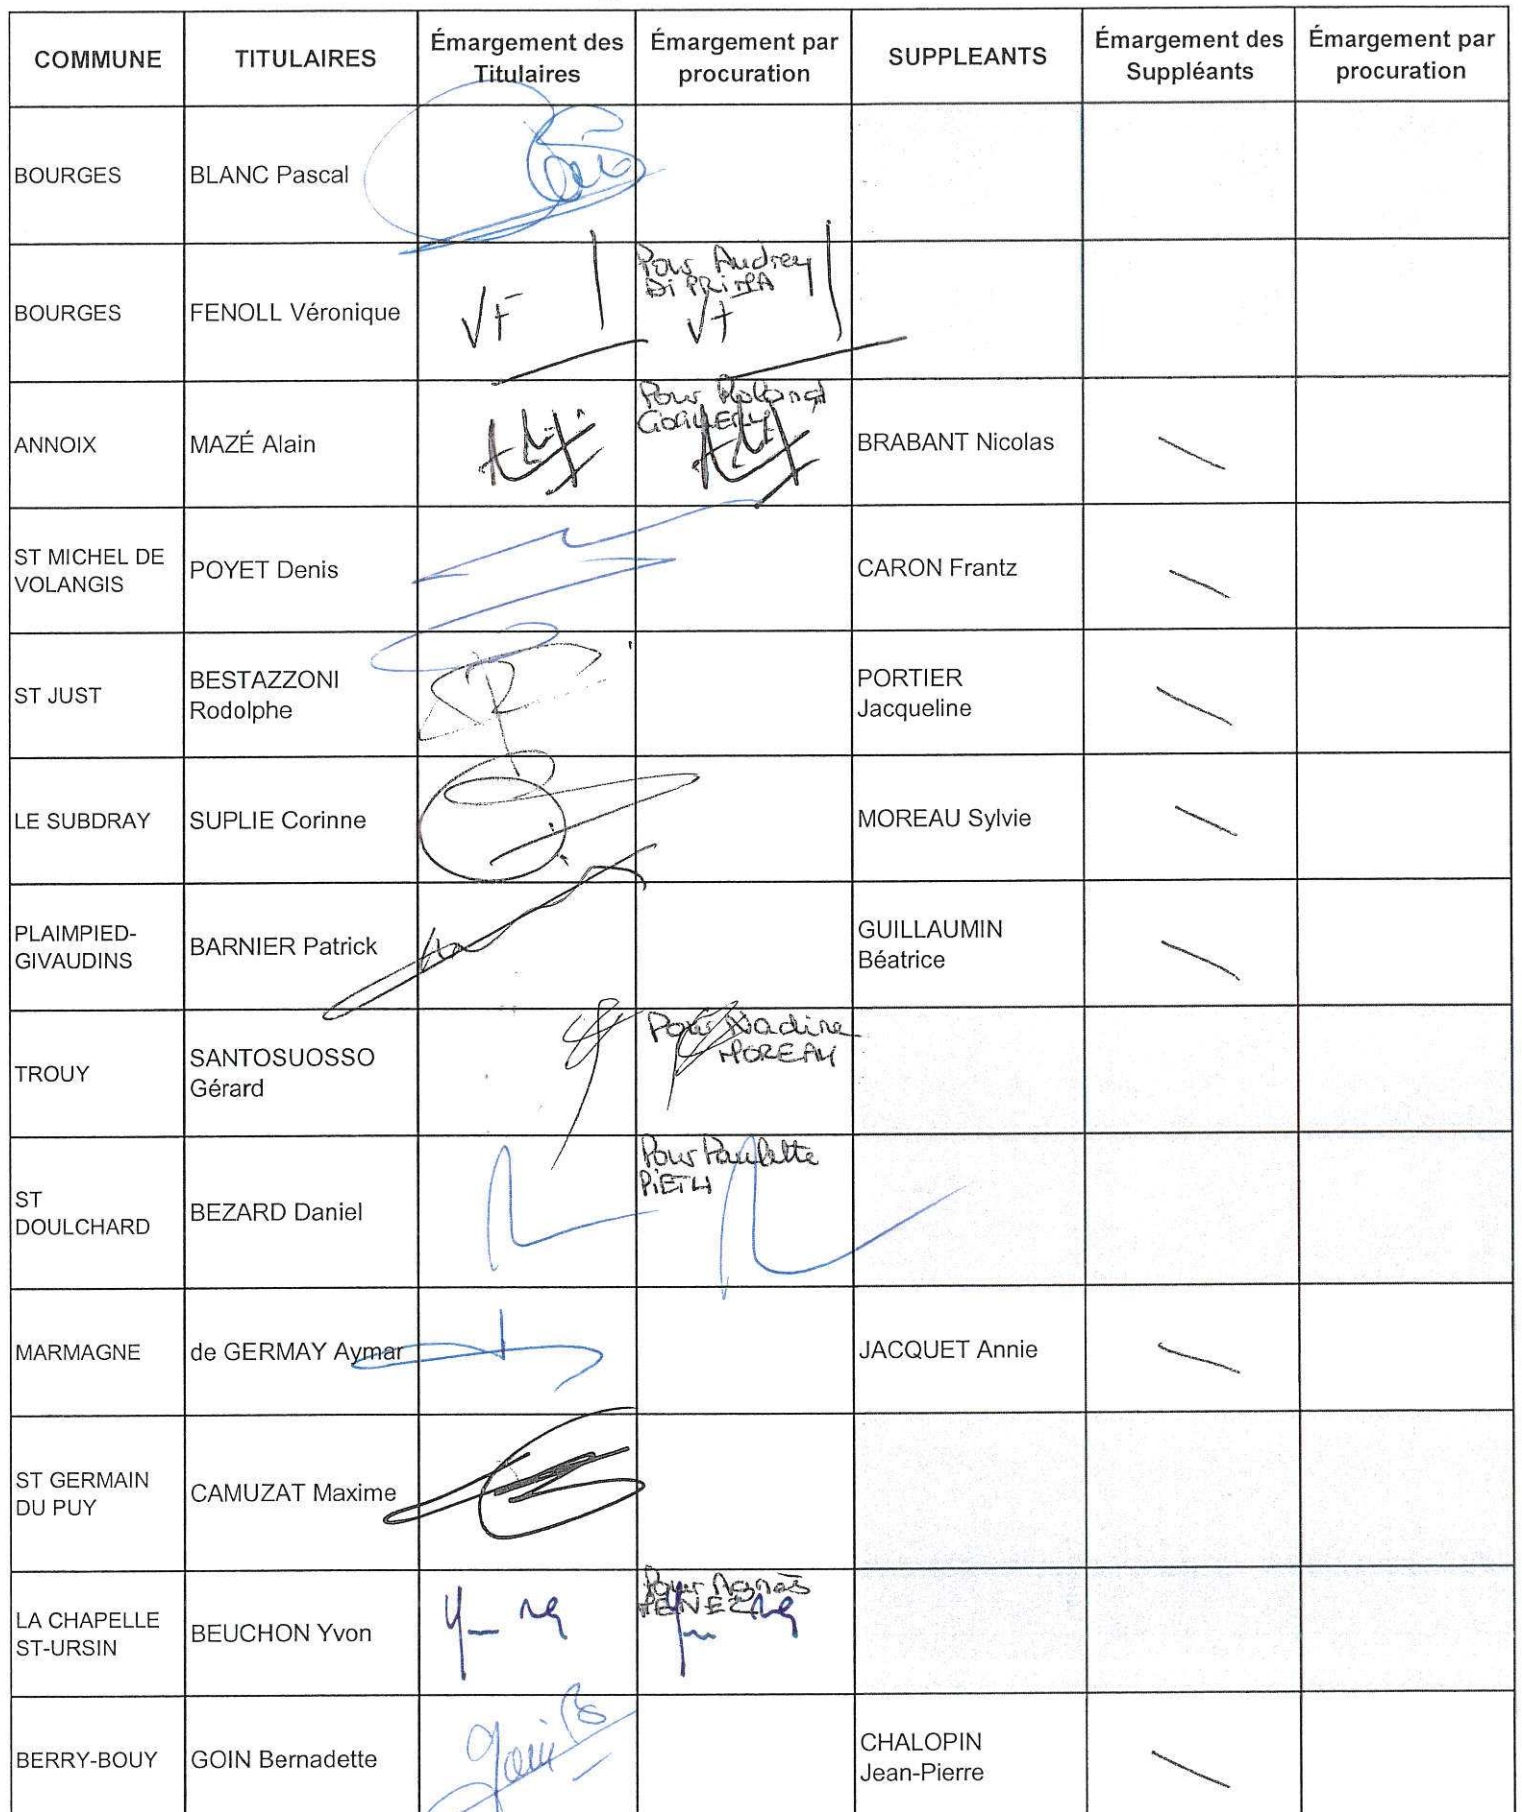 COMMUNE TITULAIRES Émargement des Titulaires Émargement par procuration SUPPLEANTS Émargement des Suppléants Émargement par procuration
BOURGES BLANC Pascal
BOURGES FENOLL Véronique VF Pour Audrey
Di PRIMA
VF
ANNOIX MAZÉ Alain Pour Roland BRABANT Nicolas
ST MICHEL DE
VOLANGIS POYET Denis CARON Frantz
ST JUST BESTAZZONI
Rodolphe PORTIER
Jacqueline
LE SUBDRAY SUPLIE Corinne MOREAU Sylvie
PLAIMPIED-
GIVAUDINS BARNIER Patrick GUILLAUMIN
Béatrice
TROUY SANTOSUOSSO
Gérard Pour Nadine
MOREAU
ST
DOULCHARD BEZARD Daniel Pour Paulette
PIETU
MARMAGNE de GERMAY Aymar JACQUET Annie
ST GERMAIN
DU PUY CAMUZAT Maxime
LA CHAPELLE
ST-URSIN BEUCHON Yvon Pour Agnès
BERRY-BOUY GOIN Bernadette CHALOPIN
Jean-Pierre